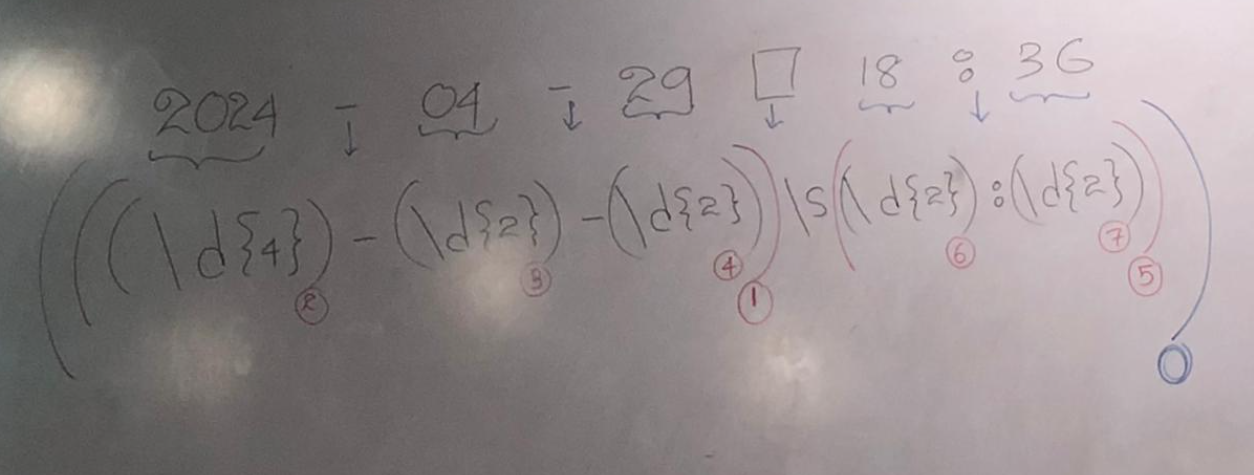 2024 - 04 - 29 □ 18 : 36
(((\d{4})-(\d{2})-(\d{2}))\s((\d{2}):(\d{2})))
2 3 4 1 6 7 5 0